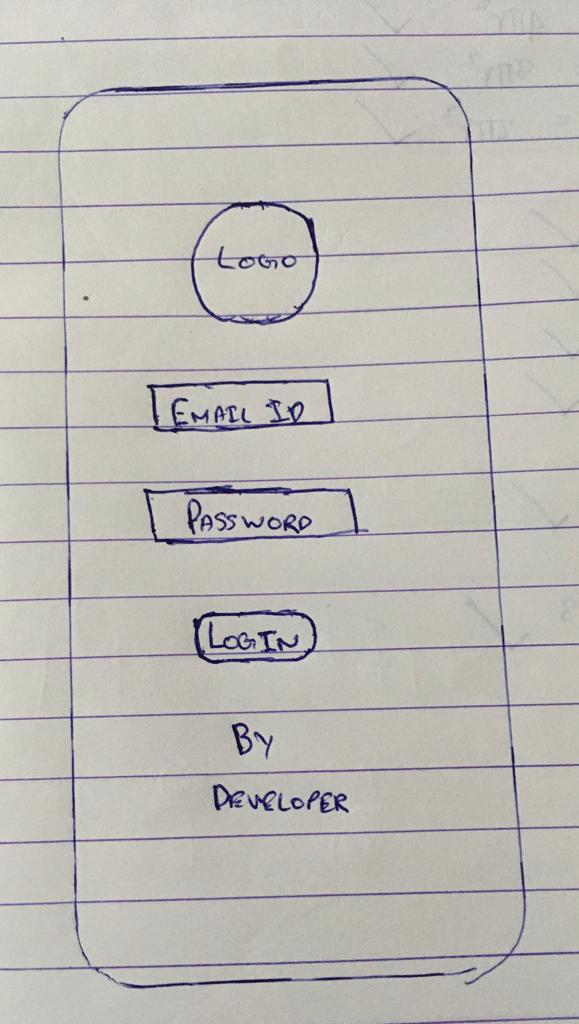 LOGO
EMAIL ID
PASSWORD
LOGIN
BY
DEVELOPER